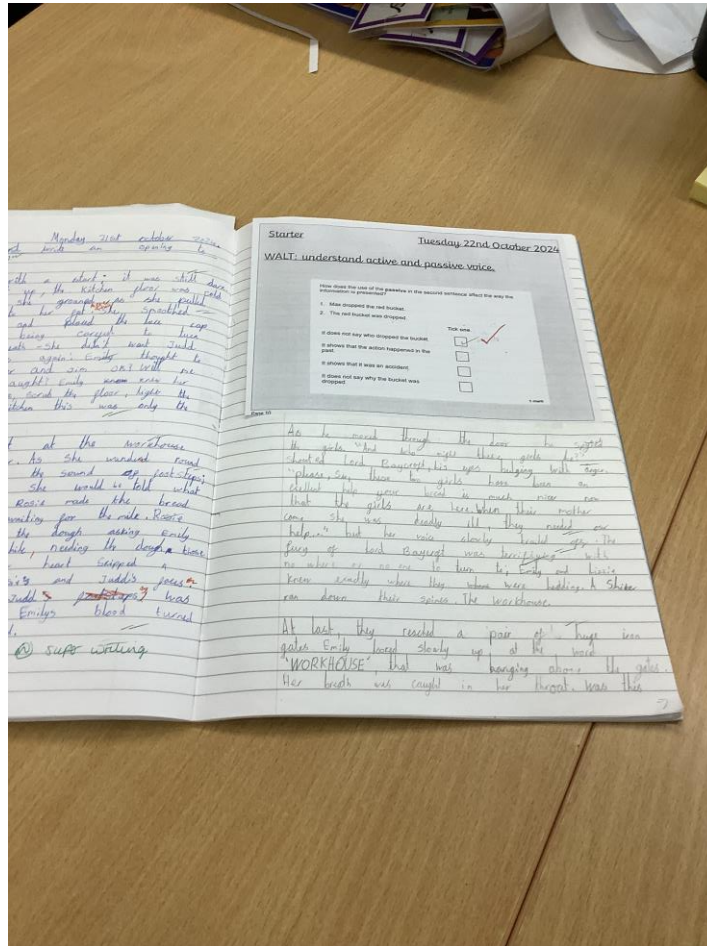 Monday 21st october 2024
an opening to
with a start - it was still dark
up, the kitchen floor was cold
she groaned as she pulled
her
and placed the lace cap
being careful to tuck
she didn't want Judd
again! Emily thought to
and Jim ok? Will me
caught? Emily knew her
scrub the floor, light the
kitchen this was only the
at the workhouse
. As she wandered round
the sound of footsteps;
She would be told what
Rosie made the bread
waiting for the milk. Rosie
the dough asking Emily
needing the dough
heart skipped a
and Judd's faces
Judd's was
Emilys blood turned
super writing
Starter
Tuesday 22nd October 2024
WALT: understand active and passive voice.
How does the use of the passive in the second sentence affect the way the
information is presented?
1. Max dropped the red bucket.
2. The red bucket was dropped.
Tick one
It does not say who dropped the bucket.
It shows that the action happened in the
past.
It shows that it was an accident.
It does not say why the bucket was
dropped.
1 mark
As he moved through the door he spotted
the girls. "And who might these girls be?"
shouted Lord Baycroft, his eyes bulging with anger.
"please, Sir, these two girls have been an
help your food is much nicer now
that the girls are here. When their mother
came she was deadly ill, they needed our
help..." but her voice slowly trailed off. The
fury of Lord Baycroft was terrifying with
no where or no one to turn to; Emily and Lizzie
knew exactly where they were hedding. A Shiver
ran down their spines. The workhouse.
At last, they reached a pair of huge iron
gates Emily looked slowly up at the word
'WORKHOUSE' that was hanging above the gates.
Her breath was caught in her throat. was this